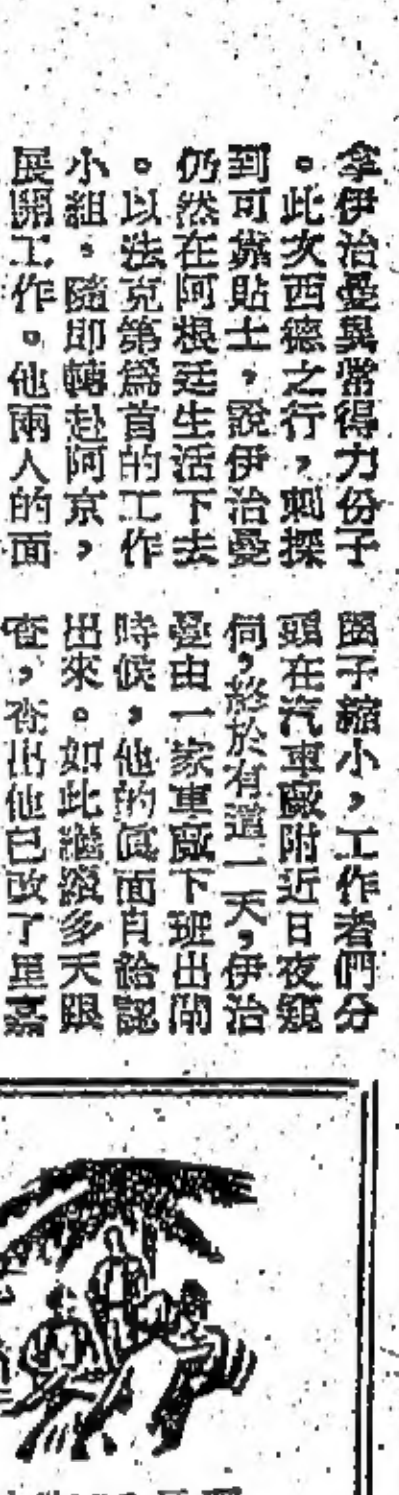 拿伊治曼異常得力份子
。此次西德之行，刺探
到可靠貼士，說伊治曼
仍然在阿根廷生活下去
。以法克第爲首的工作
小組，隨即轉赴阿京，
展開工作。他兩人的面
圈子縮小，工作者們分
頭在汽車廠附近日夜窺
伺，終於有這一天，伊治
曼由一家車廠下班出閘
時候，他的眞面目給認
出來。如此繼續多天眼
查，查出他已改了里嘉